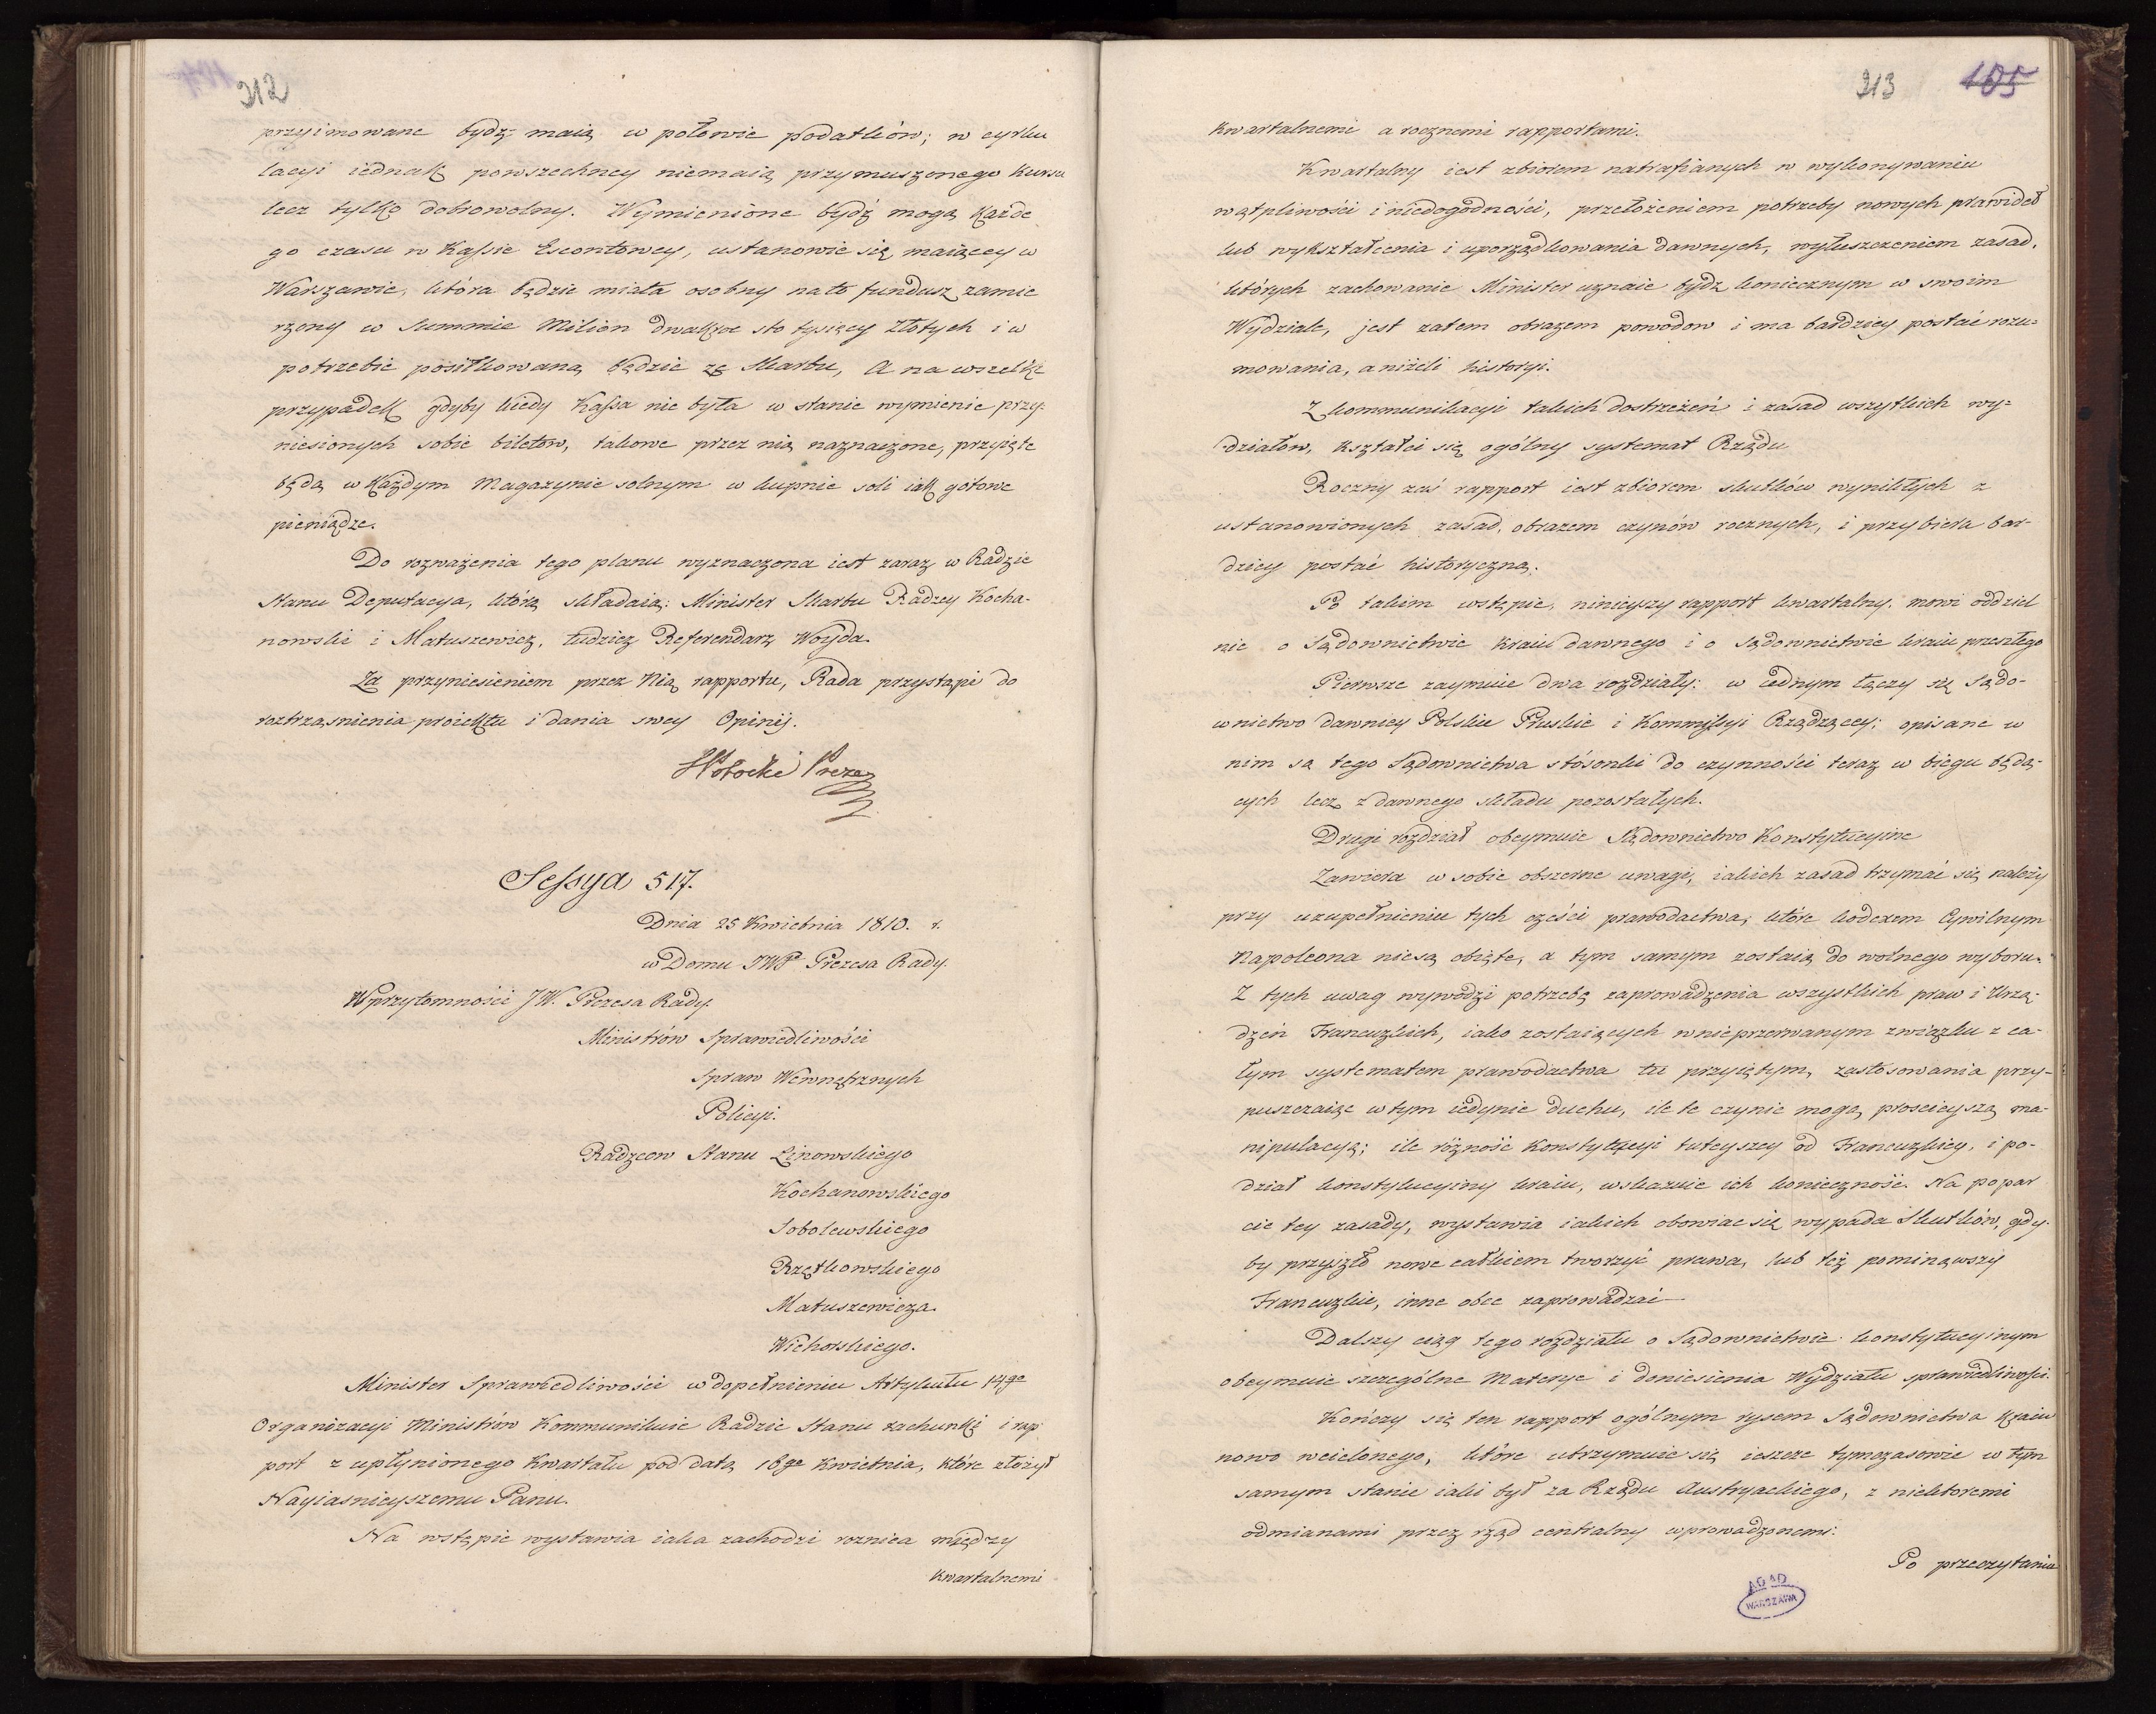 212
przyimowane bydź maią w połowie podatków; w cyrku
lacyi iednak powszechney niemaią przymuszonego kursu
lecz tylko dobrowolny. Wymienione bydź mogą każde
go czasu w Kassie Escontowey, ustanowić się maiącey w
Warszawie, która będzie miała osobny na to fundusz zamie
rzony w Summie Milion dwakroć sto tysięcy Złotych i w
potrzebie posiłkowaną będzie ze Skarbu, A na wszelki
przypadek gdyby kiedy Kassa nie była w stanie wymienić przy-
niesionych sobie biletów, takowe przez nią naznaczone, przyięte
będą w Każdym Magazynie solnym w kupnie soli iak gotowe
pieniądze.
Do rozważenia tego planu wyznaczona iest zaraz w Radzie
Stanu Deputacya, którą składaią: Minister Skarbu Radzcy Kocha-
nowski i Matuszewicz, tudzież Referendarz Woyda.
Za przyniesieniem przez Nią rapportu, Rada przystąpi do
roztrząśnienia proiektu i dania swey Opinij.
SPotocki Prezes
Sessya 517.
Dnia 25 Kwietnia 1810. r.
w Domu JWP Prezesa Rady.
W przytomności JW. Prezesa Rady.
Ministrów Sprawiedliwości
Spraw Wewnętrznych
Policyi.
Radzców Stanu Linowskiego
Kochanowskiego
Sobolewskiego
Rzętkowskiego
Matuszewicza.
Wichorskiego.
Minister Sprawiedliwości w dopełnieniu Artykułu 14go
Organizacyi Ministrów Kommunikuie Radzie Stanu rachunki i rap
port z upłynionego Kwartału pod datą 16go Kwietnia, które złożył
Nayiaśnieyszemu Panu.
Na wstępie wystawia iaka zachodzi roznica między
Kwartalnemi
213 105
kwartalnemi a rocznemi rapportami.
Kwartalny iest zbiorem natrafianych w wykonywaniu
wątpliwości i niedogodności, przełożeniem potrzeby nowych prawideł
lub wykształcenia i uporządkowania dawnych, wyłuszczeniem zasad,
których zachowanie Minister uznaie bydz koniecznym w swoim
Wydziale, jest zatem obrazem powodow i ma bardziey postać rozu-
mowania, a niżeli historyi.
Z kommunikacyi takich dostrzeżeń i zasad wszytkich wy-
działow, kształci się ogólny systemat Rządu
Roczny zaś rapport iest zbiorem skutków wynikłych z
ustanowionych zasad, obrazem czynów rocznych, i przybiera bar-
dziey postać historyczną.
Po takim wstępie, ninieyszy rapport kwartalny, mowi oddziel
nie o Sądownictwie Kraiu dawnego i o Sądownictwie kraiu przeszłego
Pierwsze zaymuie dwa rozdziały: w iednym łączy się Sądo-
wnictwo dawniey Polskie Pruskie i Kommissyi Rządzącey; opisane w
nim są tego Sądownictwa stósonki do czynności teraz w biegu będą-
cych lecz z dawnego składu pozostałych.
Drugi rozdział obeymuie Sądownictwo Konstytucyine
Zawiera w sobie obszerne uwagi, iakich zasad trzymać się należy
przy uzupełnieniu tych części prawodactwa, które kodexem Cywilnym
Napoleona niesą obięte, a tym samym zostaią do wolnego wyboru.
Z tych uwag wywodzi potrzebę zaprowadzenia wszystkich praw i Urzą-
dzeń Francuzkich, iako zostaiących w nieprzerwanym związku z ca-
łym systematem prawodactwa tu przyiętym, zastosowania przy-
puszczaiąc w tym iedynie duchu, ile te czynić mogą prościeyszą ma-
nipulacyą; ile różność Konstytucyi tuteyszey od Francuzkiey, i po-
dział konstytucyiny kraiu, wskazuie ich konieczność. Na popar
cie tey zasady, wystawia iakich obawiac się wypada Skutków, gdy-
by przyszło nowe całkiem tworzyć prawa, lub też pominąwszy
Francuzkie, inne obce zaprowadzać
Dalszy ciąg tego rozdziału o Sądownictwie konstytucyinym
obeymuie szczególne Materye i doniesienia Wydziału sprawiedliwości.
Kończy się ten rapport ogólnym rysem Sądownictwa Kraiu
nowo wcielonego, które utrzymuie się ieszcze tymczasowie w tym
samym stanie iaki był za Rządu Austryackiego, z niektoremi
odmianami przez rząd centralny wprowadzonemi.
Po przeczytaniu
AGAD
WARSZAWA